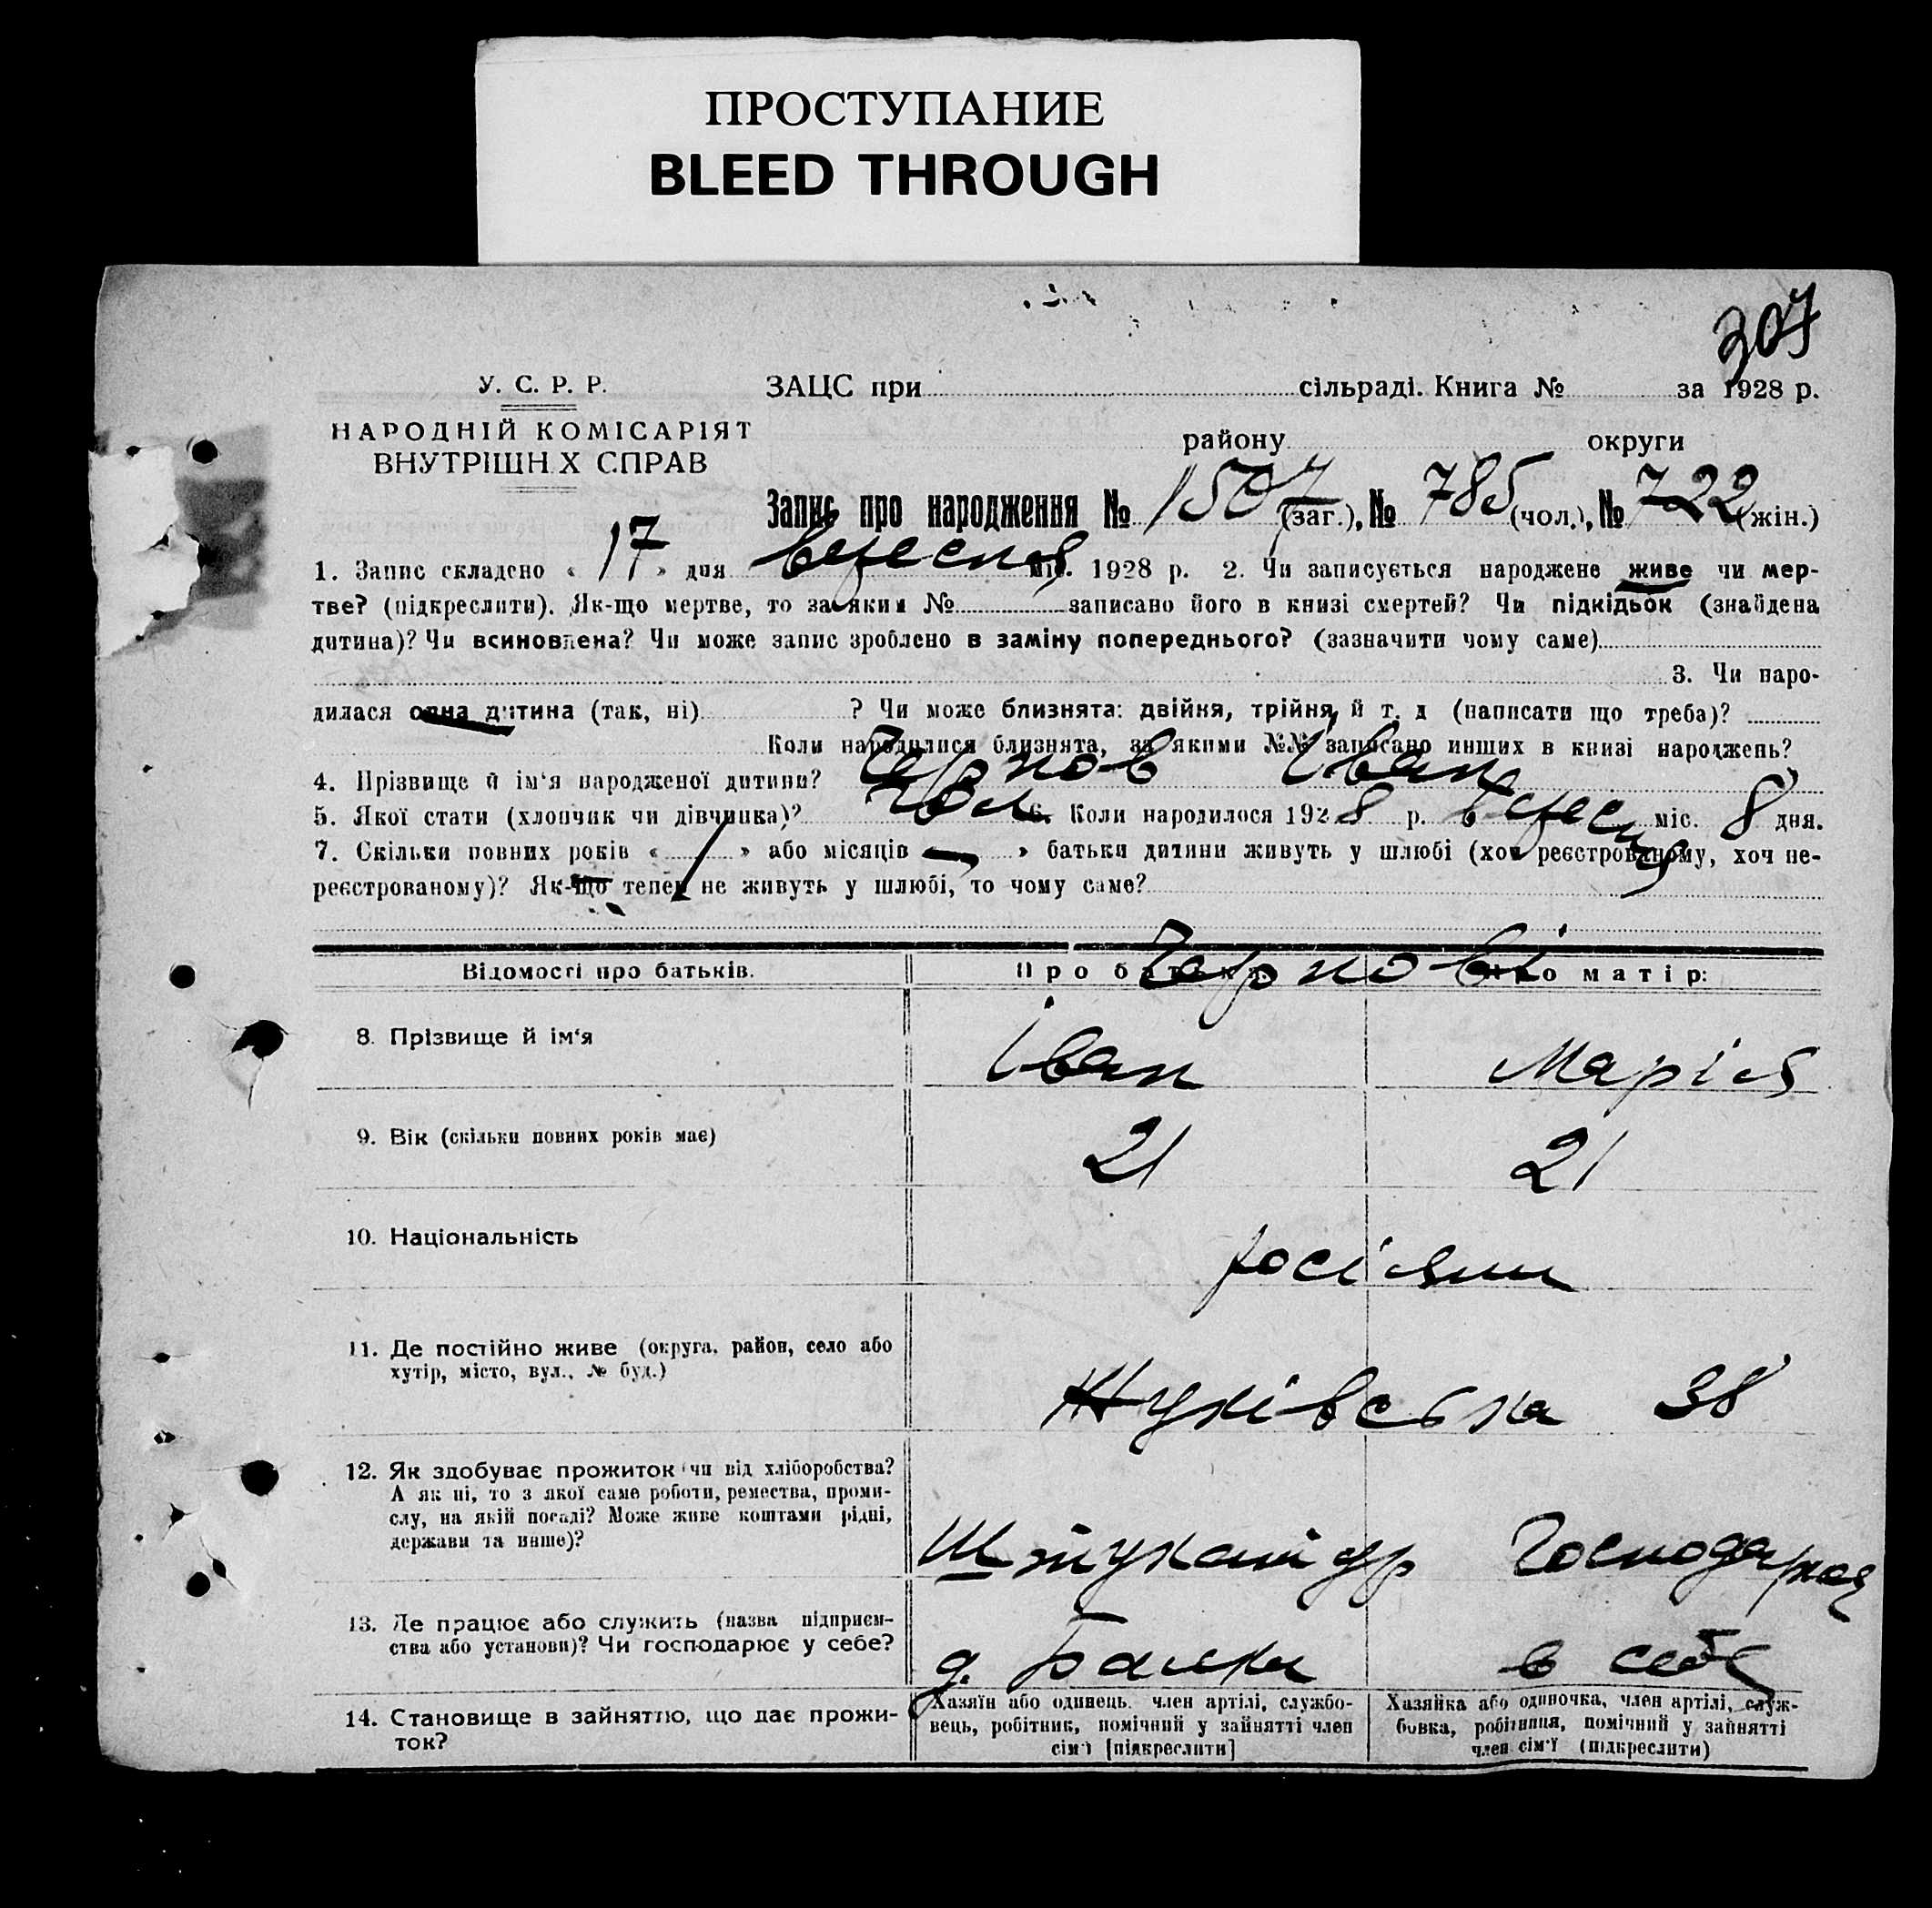 ПРОСТУПАНИЕ
BLEED THROUGH
307
У. С. Р. Р.
ЗАЦС при сільраді. Книга № за 1928 р.
НАРОДНІЙ КОМІСАРІЯТ
ВНУТРІШН Х СПРАВ
району округи
Запис про народження № 1507 (заг.), № 785 (чол.), № 722 (жін.)
1. Запис складено « 17 » дня вересня міс. 1928 р. 2. Чи записується народжене живе чи мер-
тве? (підкреслити). Як-що мертве, то за яким № записано його в книзі смертей? Чи підкідьок (знайдена
дитина)? Чи всиновлена? Чи може запис зроблено в заміну попереднього? (зазначити чому саме)
3. Чи наро-
дилася одна дитина (так, ні) ? Чи може близнята: двійня, трійня й т. д (написати що треба)?
Коли народилися близнята, за якими №№ записано инших в книзі народжень?
4. Прізвище й ім‘я народженої дитини? Чернов Іван
5. Якої стати (хлопчик чи дівчинка)? Чол 6. Коли народилося 1928 р. вересня міс. 8 дня.
7. Скільки повних років « » або місяців » батьки дитини живуть у шлюбі (хоч реєстрованому, хоч не-
реєстрованому)? Як-що тепер не живуть у шлюбі, то чому саме?
Чернові
Відомості про батьків. Про батька: Про матір:
8. Прізвище й ім‘я Іван Марія
9. Вік (скільки повних років має) 21 21
10. Національність росіяни
11. Де постійно живе (округа, район, село або
хутір, місто, вул., № буд.)
Жуківська 38
12. Як здобуває прожиток чи від хліборобства?
А як ні, то з якої саме роботи, ремества, проми-
слу, на якій посаді? Може живе коштами рідні,
держави та инше)?
Штукатур Господарює
13. Де працює або служить (назва підприєм-
ства або установи)? Чи господарює у себе?
в себе
14. Становище в зайняттю, що дає прожи-
ток?
Хазяїн або одинець, член артілі, службо-
вець, робітник, помічний у зайнятті член
сім‘ї [підкреслити]
Хазяйка або одиночка, член артілі, служ-
бовка, робітниця, помічний у зайнятті
член сім‘ї (підкреслити)